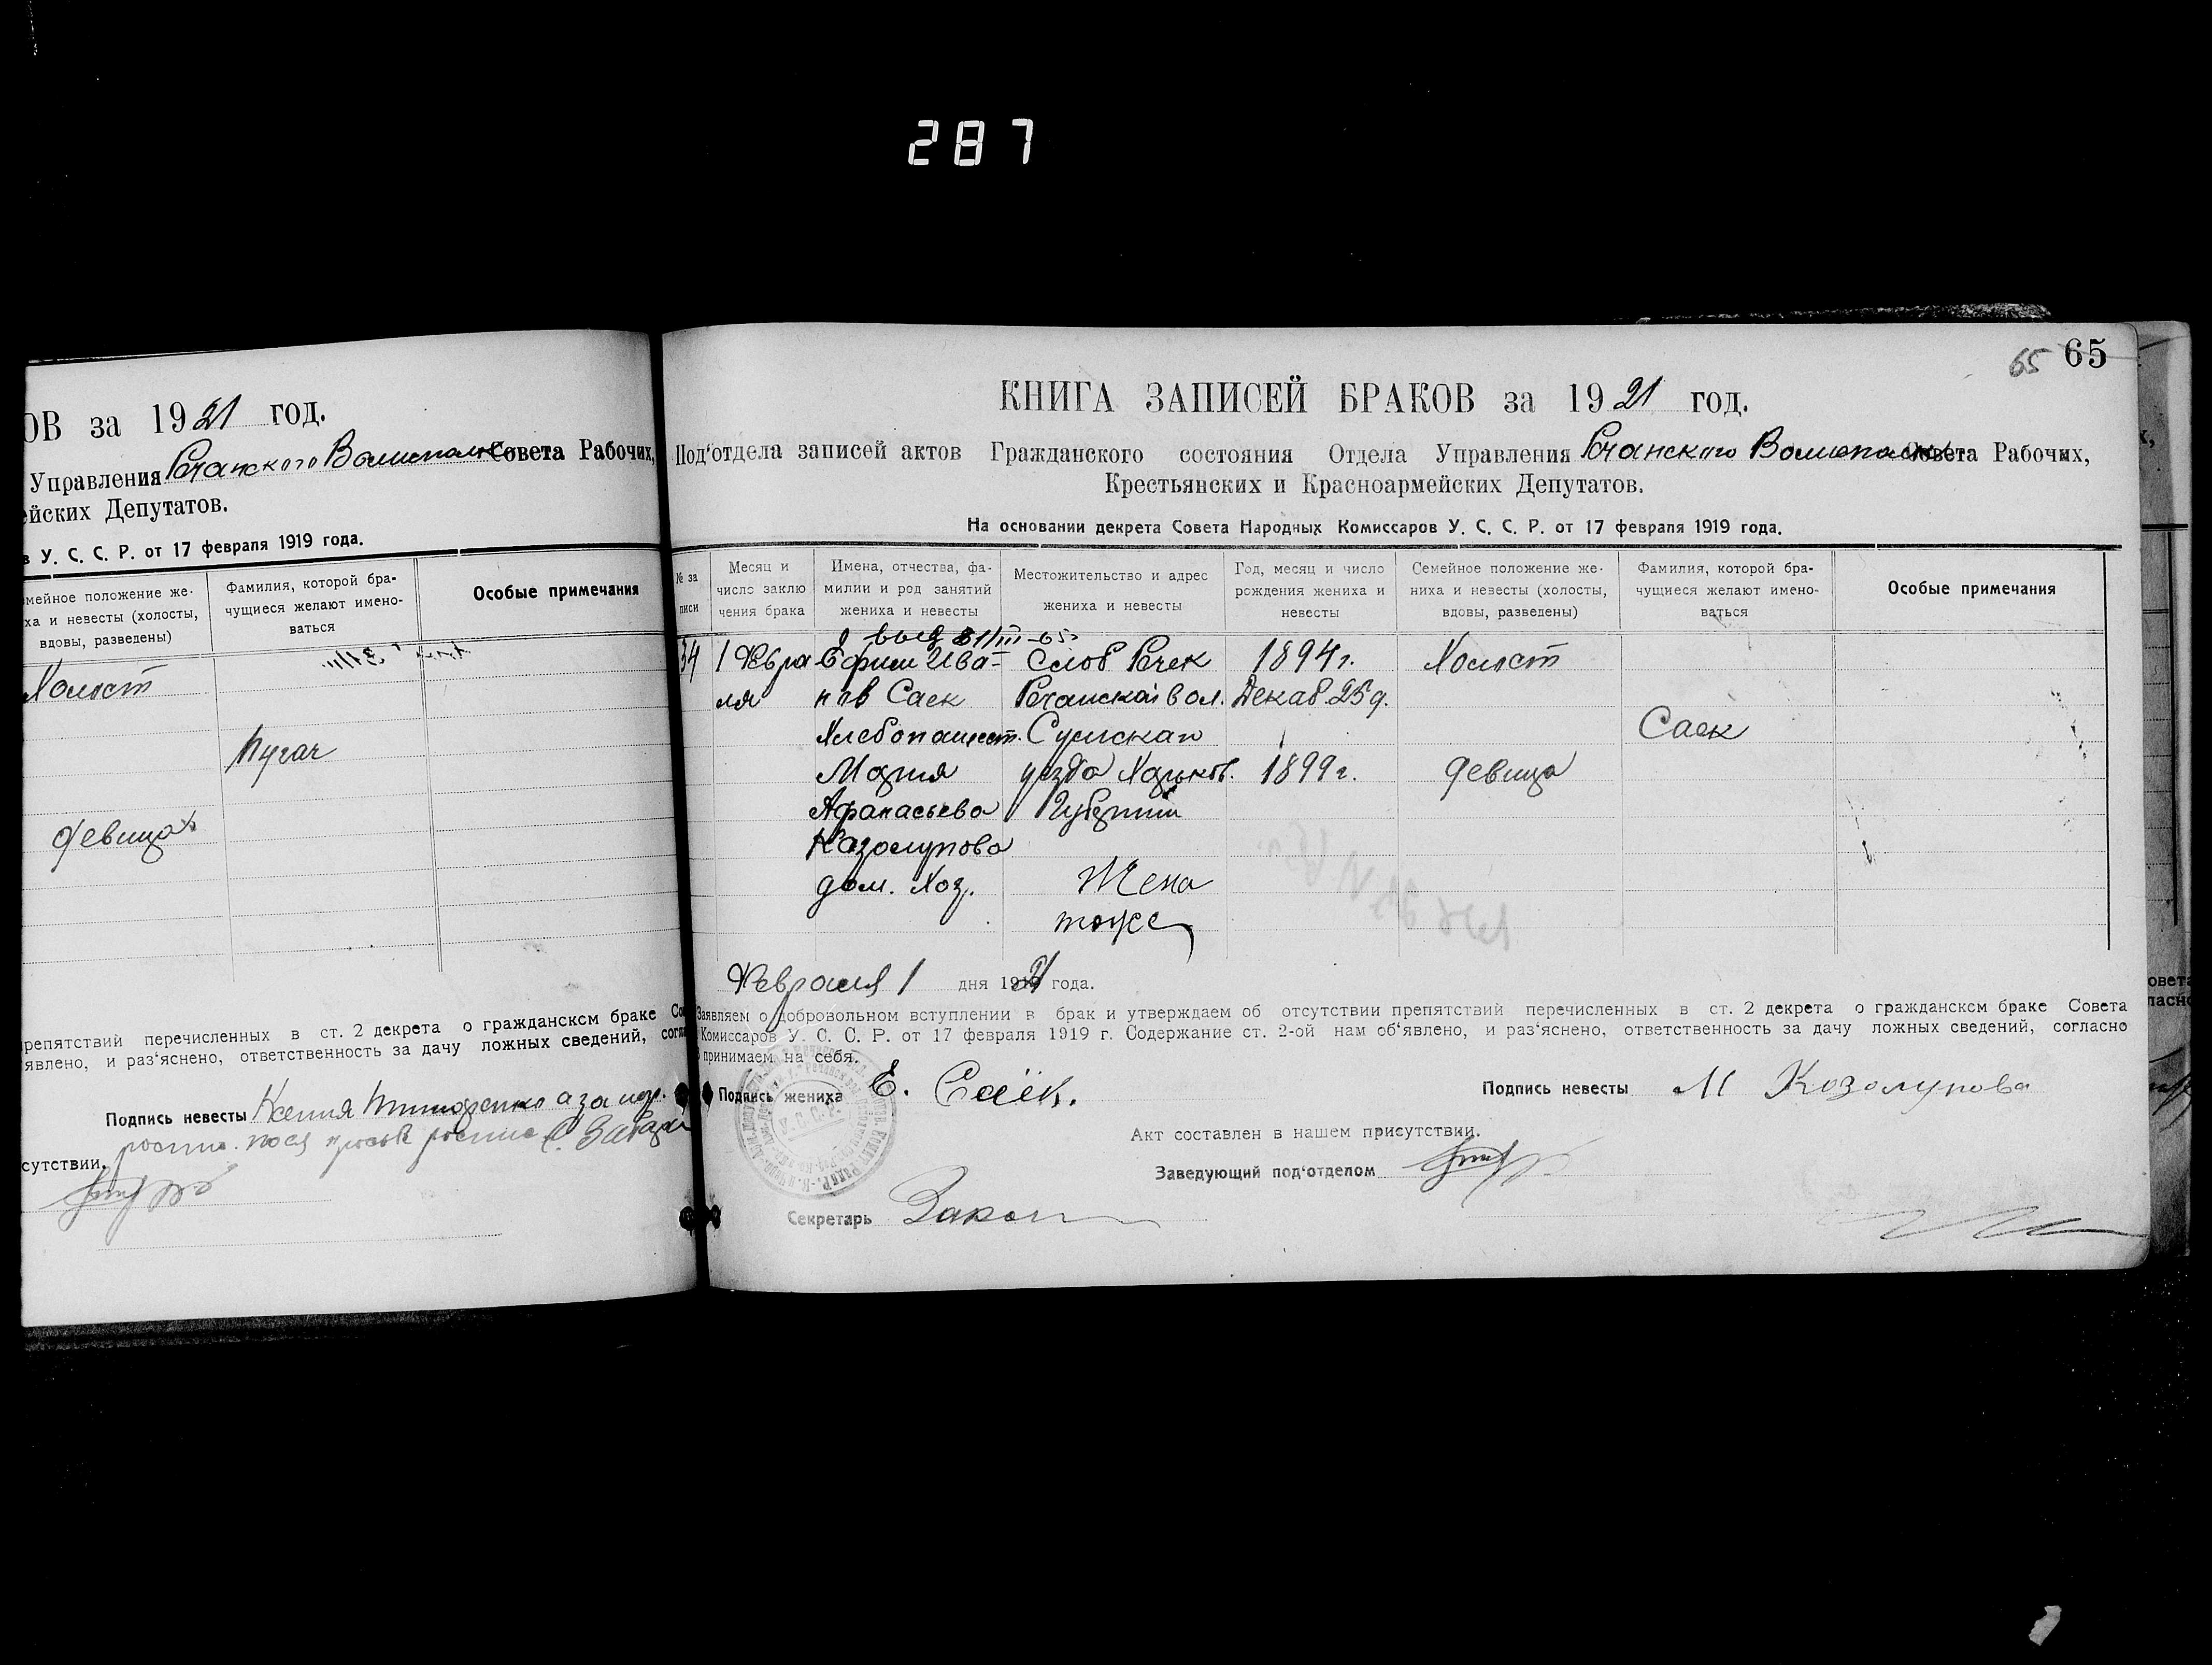 287
ОВ за 1921 год.
Управления Речанского Волисполк Совета Рабочих,
ейских Депутатов.
в У. С. С. Р. от 17 февраля 1919 года.
мейное положение же-
ха и невесты (холосты,
вдовы, разведены)
Фамилия, которой бра-
чущиеся желают имено-
ваться
Особые примечания
Холост
Пугач
девица
репятствий перечисленных в ст. 2 декрета о гражданском браке Со
явлено, и раз'яснено, ответственность за дачу ложных сведений, согла
Подпись невесты Ксения
сутствии.
65 65
КНИГА ЗАПИСЕЙ БРАКОВ за 1921 год.
Под'отдела записей актов Гражданского состояния Отдела Управления Речанского Волисполк Совета Рабочих,
Крестьянских и Красноармейских Депутатов.
На основании декрета Совета Народных Комиссаров У. С. С. Р. от 17 февраля 1919 года.
№ за
писи
Месяц и
число заклю
чения брака
Имена, отчества, фа-
милии и род занятий
жениха и невесты
Местожительство и адрес
жениха и невесты
Год, месяц и число
рождения жениха и
невесты
Семейное положение же-
ниха и невесты (холосты,
вдовы, разведены)
Фамилия, которой бра-
чущиеся желают имено-
ваться
Особые примечания
34
1 Февра
ля
выд 31/III-65г
Ефим Ива-
нов Саек
Хлебопашест.
Мария
Афанасьева
Казолупова
дом. Хоз.
Слоб Речек
Речанской вол.
Сумскаго
уезда Харьков.
Губернии
Жена
тоже
1894г.
Декаб. 25д.
1899г.
Холост
девица
Саек
Февраля 1 дня 1921 года.
Заявляем о добровольном вступлении в брак и утверждаем об отсутствии препятствий перечисленных в ст. 2 декрета о гражданском браке Совета
Комиссаров У. С. С. Р. от 17 февраля 1919 г. Содержание ст. 2-ой нам об'явлено, и раз'яснено, ответственность за дачу ложных сведений, согласно
принимаем на себя.
Подпись жениха Е. Саёк.
Подпись невесты М Козолупова
Акт составлен в нашем присутствии.
Заведующий под'отделом
Секретарь